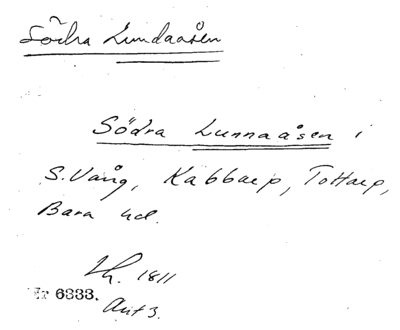 Södra Lundaåsen
Södra Lunnaåsen i
S. Vång, Kabbarp, Tottarp,
Bara hd.
Lh. 1811
Nr 6333.
Akt 3.